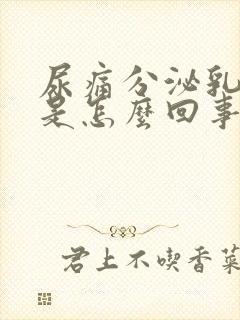 尿痛分泌乳
是怎麼回事
君上不喫香菜